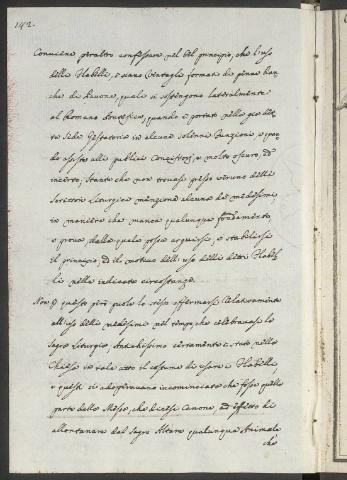 142.
Conviene peraltro confessare nel bel principio, che l'uso
delli Flabelli, o siano Ventagli formati di penne bian
che di Pavone, quali si sostengono lateralmente
al Romano Pontefice, quando è portato nella già det
ta Sedia Gestatoria in alcune solenni Funzioni, o quan
do assiste alli publici Concistorj, è molto oscuro, ed
incerto, stante che non trovasi presso veruno delli
Scrittori Liturgici menzione alcuna de' medesimi
in maniera che manca qualunque fondamento
o prova dalla quale possa acquirsi, o stabilirsi
il principio, ed il motivo dell'uso delli detti Flabel
li nelle indicate circostanze.
Non p questo però puole lo stesso affermarsi relativamente
all'uso delli medesimi nel tempo che celebravasi la
Sagra Liturgia, Antichissimo certamente è stato nella
Chiesa in tale atto il costume di usare i Flabelli,
e questi si adoperavano incominciato che fosse quella
parte della Messa, che dicesi Canone, ad effetto di
allontanare dal Sagro Altare qualunque Animale
che